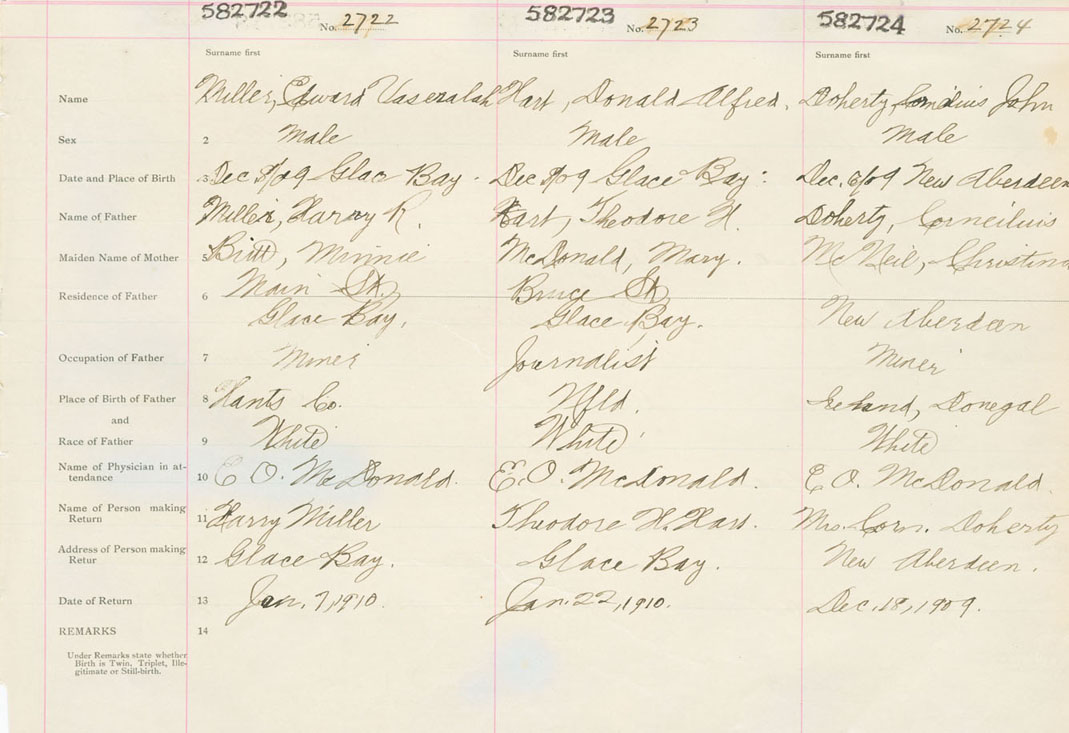 582722 No. 2722 582723 No. 2723 582724 No. 2724
Surname first Surname first Surname first
Name Miller, Edward Hart, Donald Alfred. Doherty, John
Sex 2 Male Male Male
Date and Place of Birth 3 Dec /09 Glace Bay. Dec /09 Glace Bay. Dec. 6/09 New Aberdeen
Name of Father Miller, Harry R. Hart, Theodore H. Doherty, Corneilius
Maiden Name of Mother 5 Minnie McDonald, Mary. McNeil, Christina
Residence of Father 6 Main St. Bruce St.
Glace Bay, Glace Bay. New Aberdeen
Occupation of Father 7 Miner Journalist Miner
Place of Birth of Father 8 Hants Co. Nfld. Ireland, Donegal
and
Race of Father 9 White White White
Name of Physician in at-
tendance 10 E O. McDonald. E. O. McDonald. E O. McDonald.
Name of Person making
Return 11 Harry Miller Theodore H. Hart. Mrs. Corn. Doherty
Address of Person making
Retur 12 Glace Bay. Glace Bay. New Aberdeen.
Date of Return 13 Jan. 7, 1910. Jan. 22, 1910. Dec. 18, 1909.
REMARKS 14
Under Remarks state whether
Birth is Twin, Triplet, Ille-
gitimate or Still-birth.